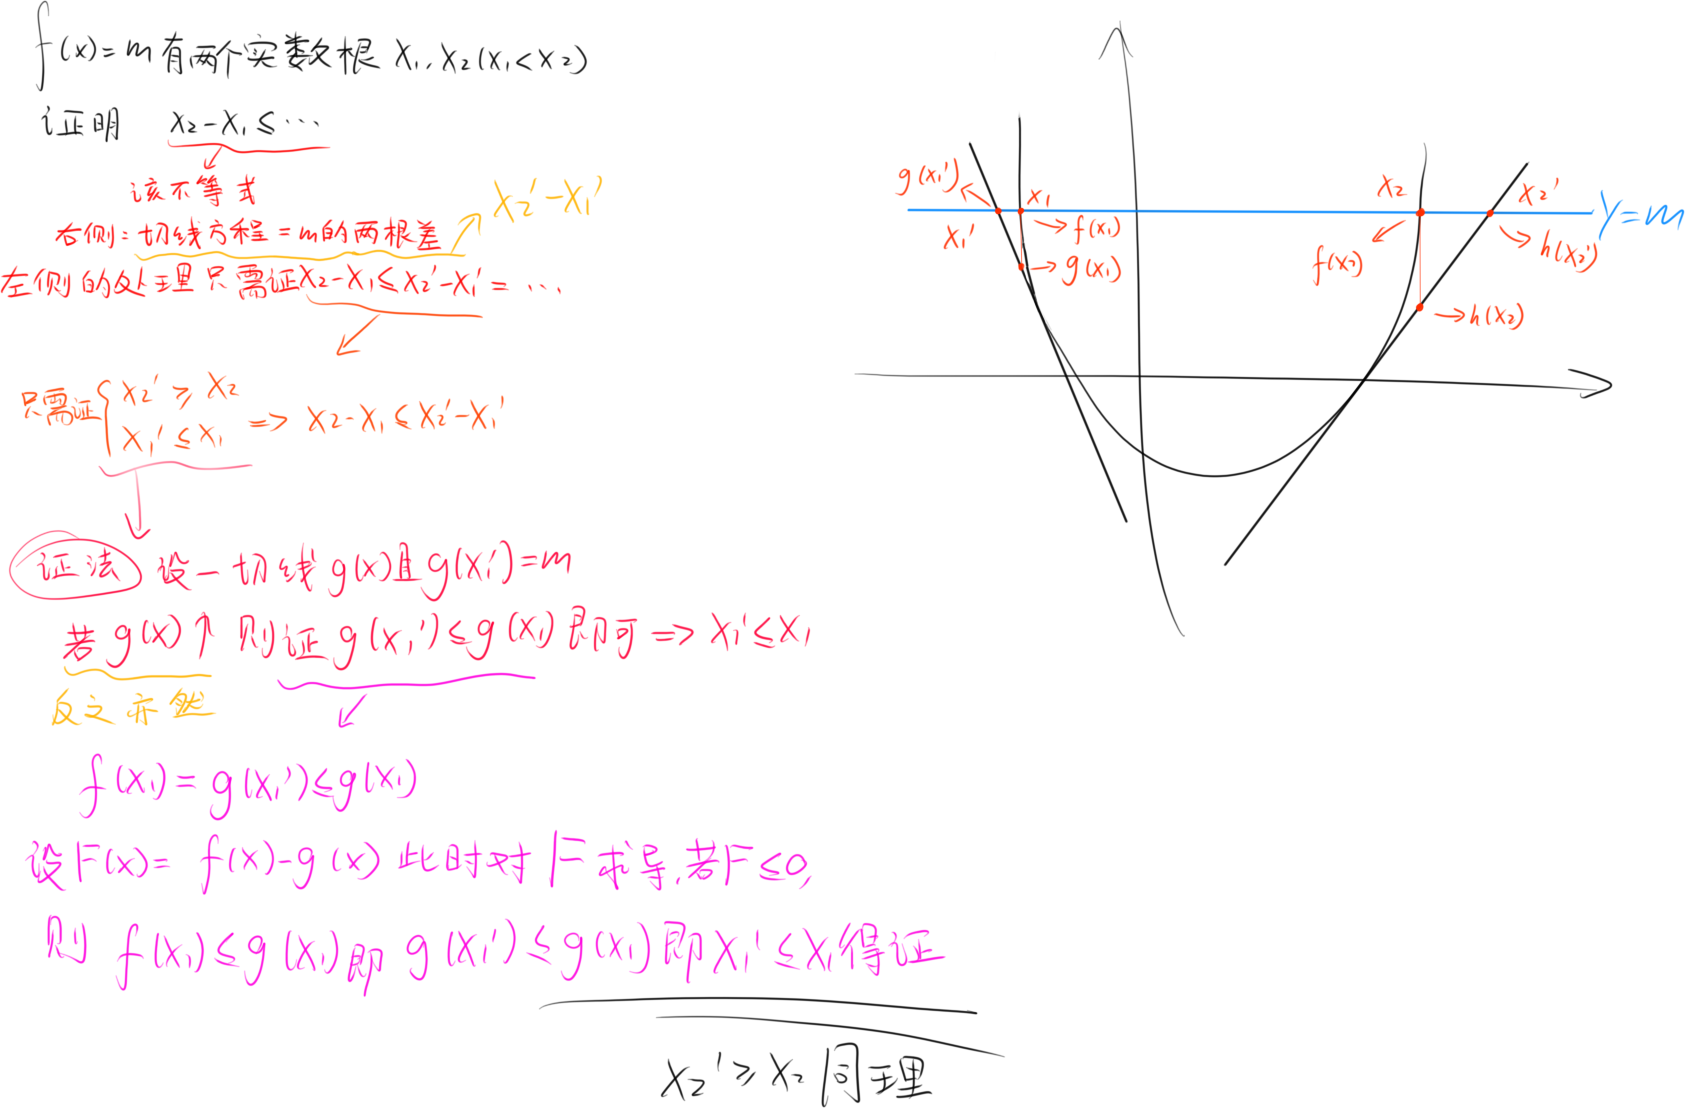 f(x)=m有两个实数根 x₁,x₂(x₁<x₂)
证明 x₂-x₁≤…
该不等式
x₂'-x₁'
右侧:切线方程=m的两根差
左侧的处理只需证x₂-x₁≤x₂'-x₁'=…
只需证{x₂'≥x₂
x₁'≤x₁ => x₂-x₁≤x₂'-x₁'
证法 设一切线g(x)且g(x₁')=m
若g(x)↑ 则证g(x₁')≤g(x₁)即可=>x₁'≤x₁
反之亦然
f(x₁)=g(x₁')≤g(x₁)
设F(x)=f(x)-g(x)此时对F求导,若F≤0,
则f(x₁)≤g(x₁)即g(x₁')≤g(x₁)即x₁'≤x₁得证
x₂'≥x₂同理
g(x₁')
x₁
x₂
x₂'
y=m
x₁'
f(x₁)
g(x₁)
f(x₂)
h(x₂')
h(x₂)